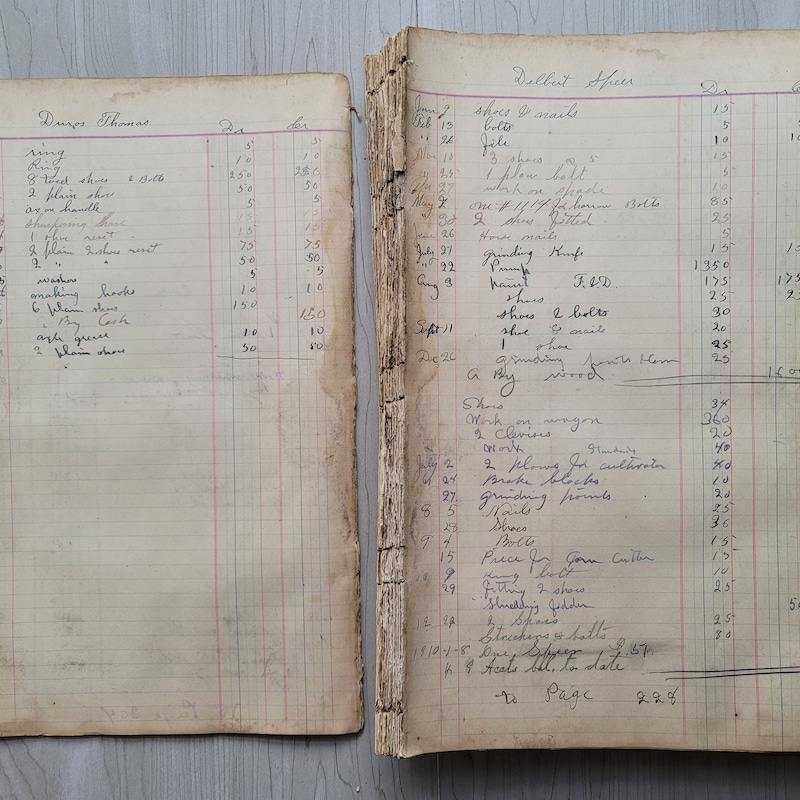 Thomas
Dr Cr
ring 5 5
Ring 10 10
8 toed shoes & Bolts 250 250
2 plain shoe 50 50
ax on handle 5 5
sharpening 15 15
1 shoe reset 15 15
2 plain 2 shoes reset 75 75
2 " " 50 50
washers 5 5
making hooks 10 10
6 plain shoes 150
By Cash 150
axle grease 10 10
2 plain shoes 50 50
Delbert Speer
Dr C
9 shoes & nails 15
Feb 13 bolts 5
" 26 file 10 10
10 3 shoes @ 5 15
25 1 plow bolt 5
27 work on spade 10
May 2 one # harrow Bolts 85
2 shoes fitted 25
26 Horse nails 5
July 21 grinding Knife 15
" 22 Pump 1350
Aug 3 paint F. & D. 175 175
shoes 25
shoes & bolts 30
Sept 11 shoe & nails 20
1 shoe 25
Dec 26 grinding 25
By wood
Shoes 34
Work on wagon 360
2 Clevises 20
Work 40
July 2 2 plows for cultivator 40
24 Brake blocks 10
27 grinding points 20
8 5 Nails 25
28 Shoes 36
9 4 Bolts 15
15 Piece for Corn Cutter 15
9 King bolt 10
29 Fitting 2 shoes 25
Shredding fodder
12 2 25
& bolts 80
1910-1-8 Due Speer .57
Accts bal. to date
to Page 228